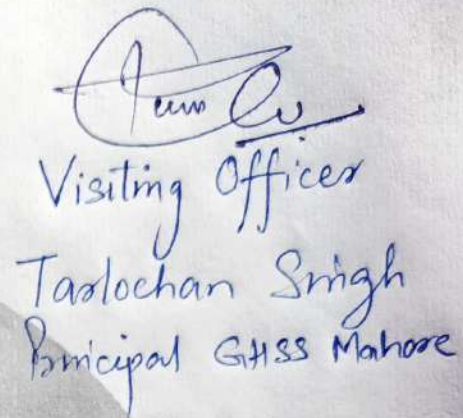 Visiting Officer
Tarlochan Singh
Principal GHSS Mahore